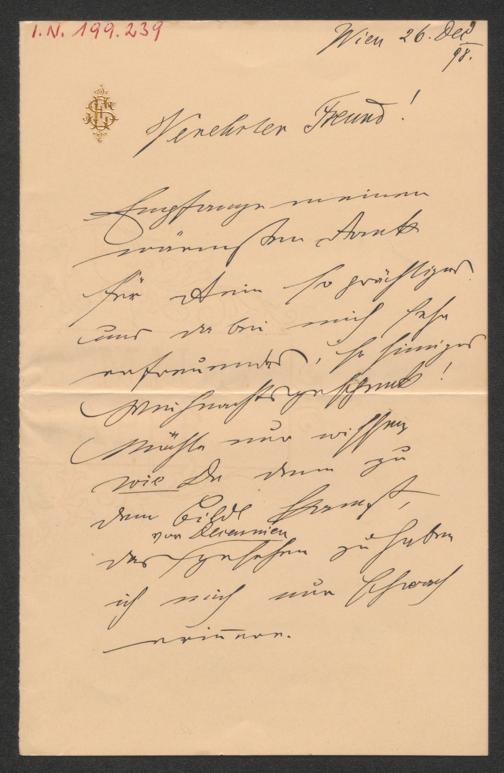 I.N. 199.239
Wien 26. Dec
98.
Verehrter Freund!
Empfange meinen
wärmsten Dank
für Dein so prächtiges
und dabei mich sehr
erfreuendes, so sinniges
Weihnachtsgeschenk!
Möchte nur wissen
wie Du denn zu
dem Bilde kamst,
vor Decennien
das gesehen zu haben
ich mich nur schwach
erinnere.